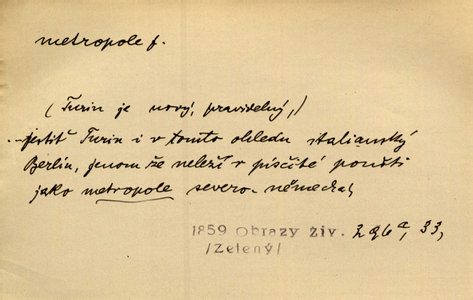 metropole f.
(Turin je nový, pravidelný,)
...jestiť Turin i v tomto ohledu italianský
Berlin, jenom že neleží v písčité poušti
jako metropole severo-německá,
1859 Obrazy živ. 296a, 33,
/Zelený/